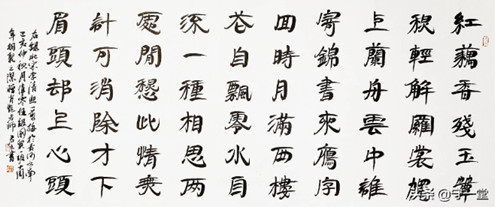 紅藕香殘玉簟
秋輕解羅裳獨
上蘭舟雲中誰
寄錦書來雁字
回時月滿西樓
花自飄零水自
流一種相思兩
處閒愁此情無
計可消除才下
眉頭却上心頭
右錄北宋李清照一剪梅